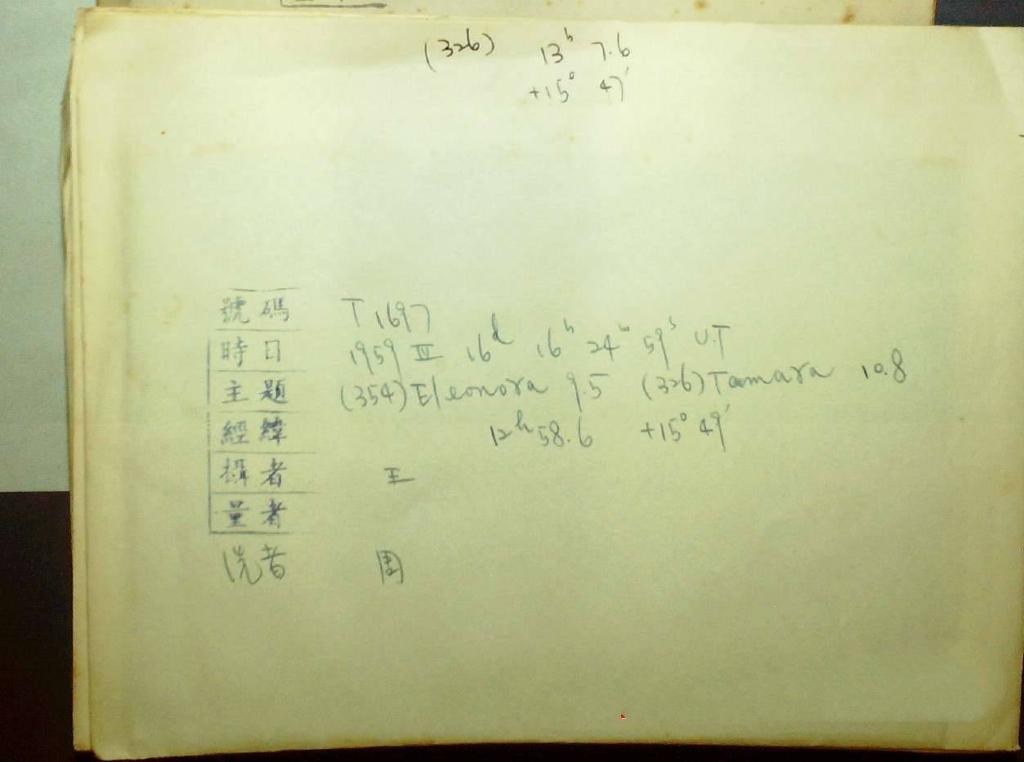 (326) 13ʰ 7.6
+15° 47′
號碼 T 1697
時日 1959 III 16ᵈ 16ʰ 24ᵐ 59ˢ U.T
主題 (354) Eleonora 9.5 (326) Tamara 10.8
經緯 12ʰ 58.6 +15° 49′
攝者 王
量者
洗者 周